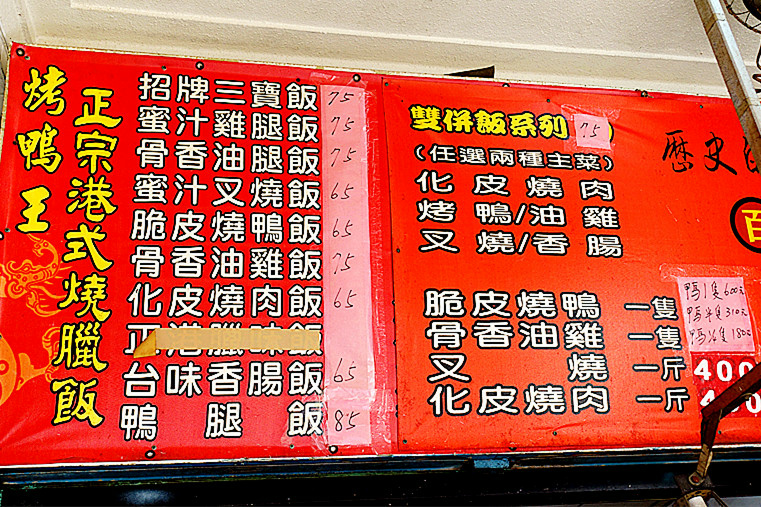 烤鴨王
正宗港式燒臘飯
招牌三寶飯 75
蜜汁雞腿飯 75
骨香油腿飯 75
蜜汁叉燒飯 65
脆皮燒鴨飯 65
骨香油雞飯 75
化皮燒肉飯 65
正港臘味飯
台味香腸飯 65
鴨腿飯 85
雙併飯系列 75
(任選兩種主菜)
化皮燒肉
烤鴨/油雞
叉燒/香腸
脆皮燒鴨 一隻
骨香油雞 一隻
叉燒 一斤 400
化皮燒肉 一斤
鴨1隻600元
鴨半隻310元
鴨1/4隻180元
歷史
百